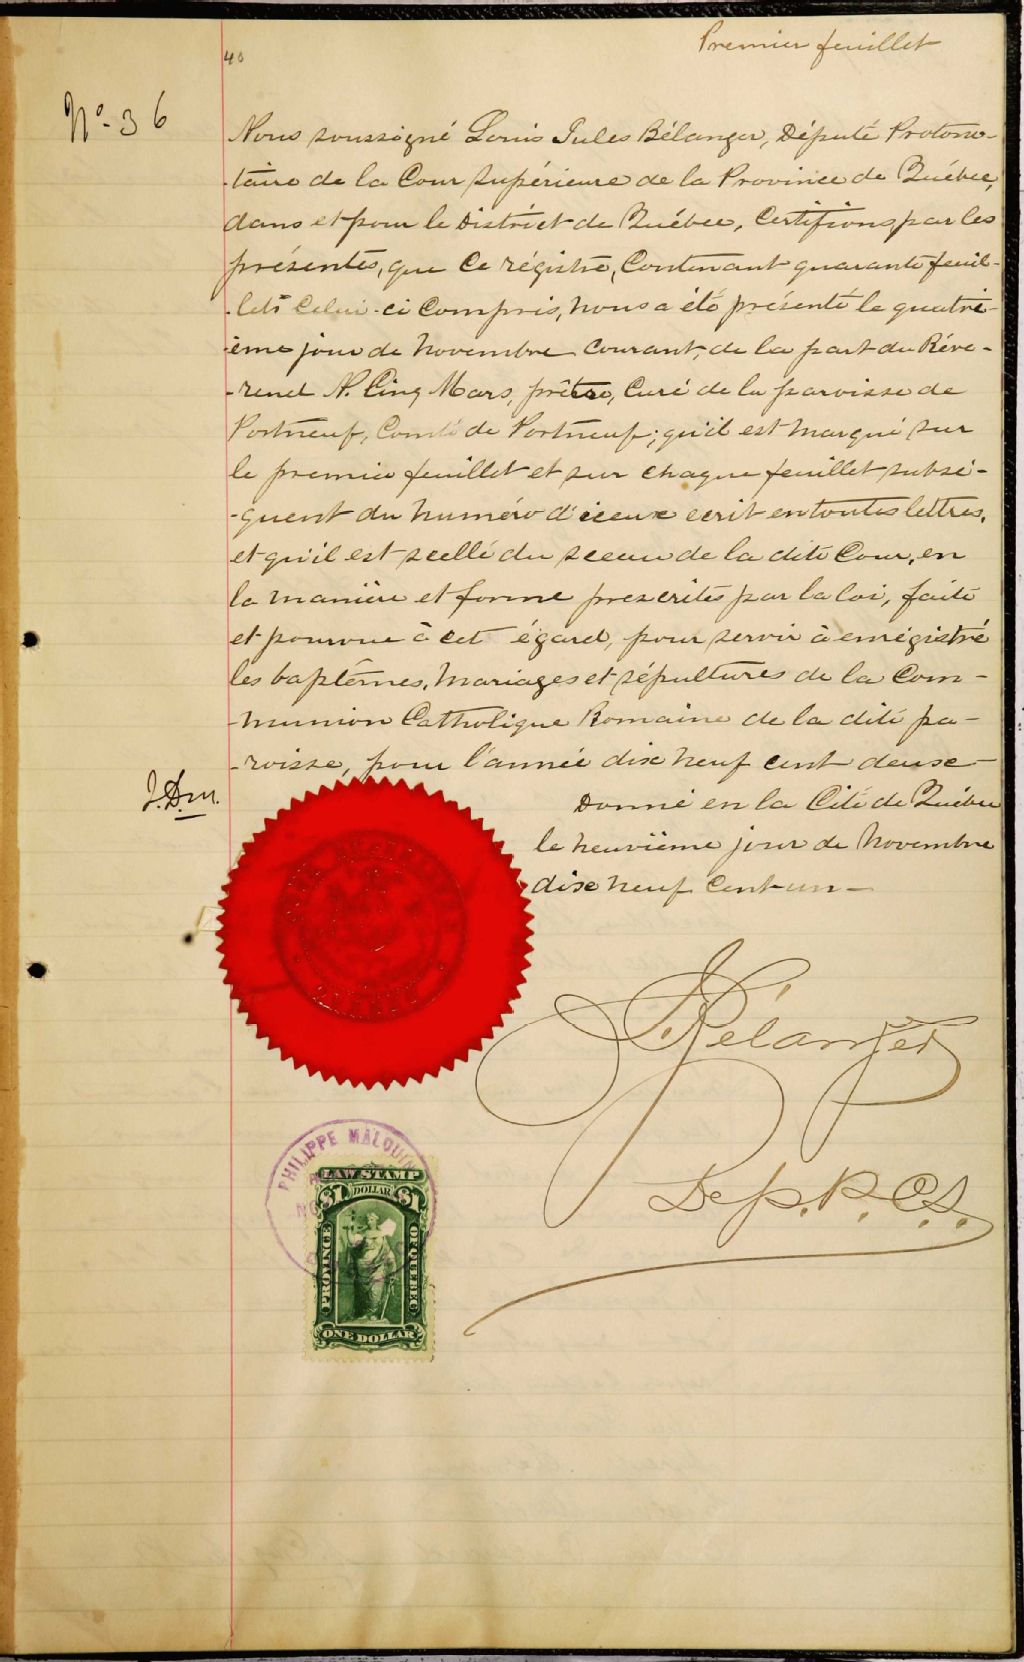 Premier feuillet
40
No. 36
Nous soussigné Louis Jules Bélanger, Député Protono-
-taire de la Cour Supérieure de la Province de Québec,
dans et pour le District de Québec, Certifions par les
présentes, que ce régistre, Contenant quarante feuil-
-lets celui-ci compris, nous a été présenté le quatri-
-ème jour de novembre courant, de la part du Réve-
-rend N. Cinq Mars, prêtre, Curé de la paroisse de
Portneuf, Comté de Portneuf; qu'il est marqué sur
le premier feuillet et sur chaque feuillet subsé-
-quent du numéro d'iceux ecrit en toutes lettres,
et qu'il est scellé du sceau de la dite Cour, en
la manière et forme prescrites par la loi, faite
et pourvue à cet égard, pour servir à enrégistré
les baptêmes, mariages et sépultures de la Com-
-munion Catholique Romaine de la dite pa-
-roisse, pour l'année dix neuf cent deux-
J.D.M.
Donné en la Cité de Québec
le neuvième jour de Novembre
dix neuf cent un-
Bélanger
Dep. P. C.S.
PHILIPPE MALOUIN
LAW STAMP
$1 DOLLAR $1
PROVINCE OF QUEBEC
ONE DOLLAR